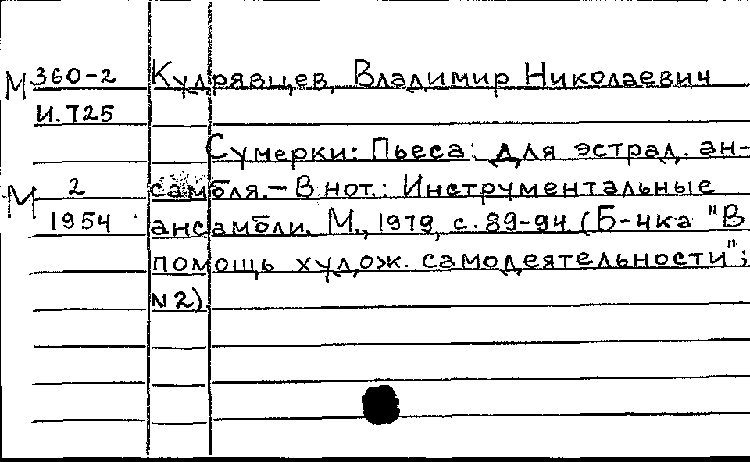 М 360-2 Кудрявцев, Владимир Николаевич
И.725
Сумерки: Пьеса: для эстрад. ан-
М 2 самбля.- В нот.: Инструментальные
1954 ансамбли. М., 1979, с. 89-94 (Б-чка "В
помощь худож. самодеятельности";
N2).